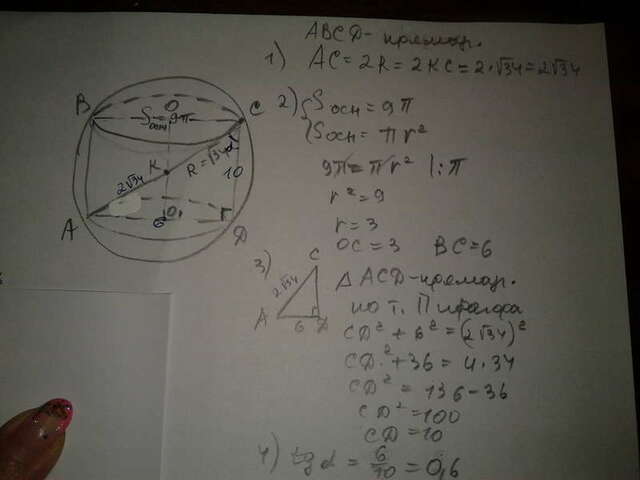 ABCD - прямоуг.
1) AC = 2R = 2KC = 2·√34 = 2√34
B
O
C
Sосн = 9π
K
R = √34
α
10
2√34
A
O₁
6
D
2) {Sосн = 9π
{Sосн = πr²
9π = πr² |:π
r² = 9
r = 3
OC = 3 BC = 6
3)
C
2√34
A
6
D
△ ACD - прямоуг.
по т. Пифагора
CD² + 6² = (2√34)²
CD² + 36 = 4·34
CD² = 136 - 36
CD² = 100
CD = 10
4) tg α = 6/10 = 0,6